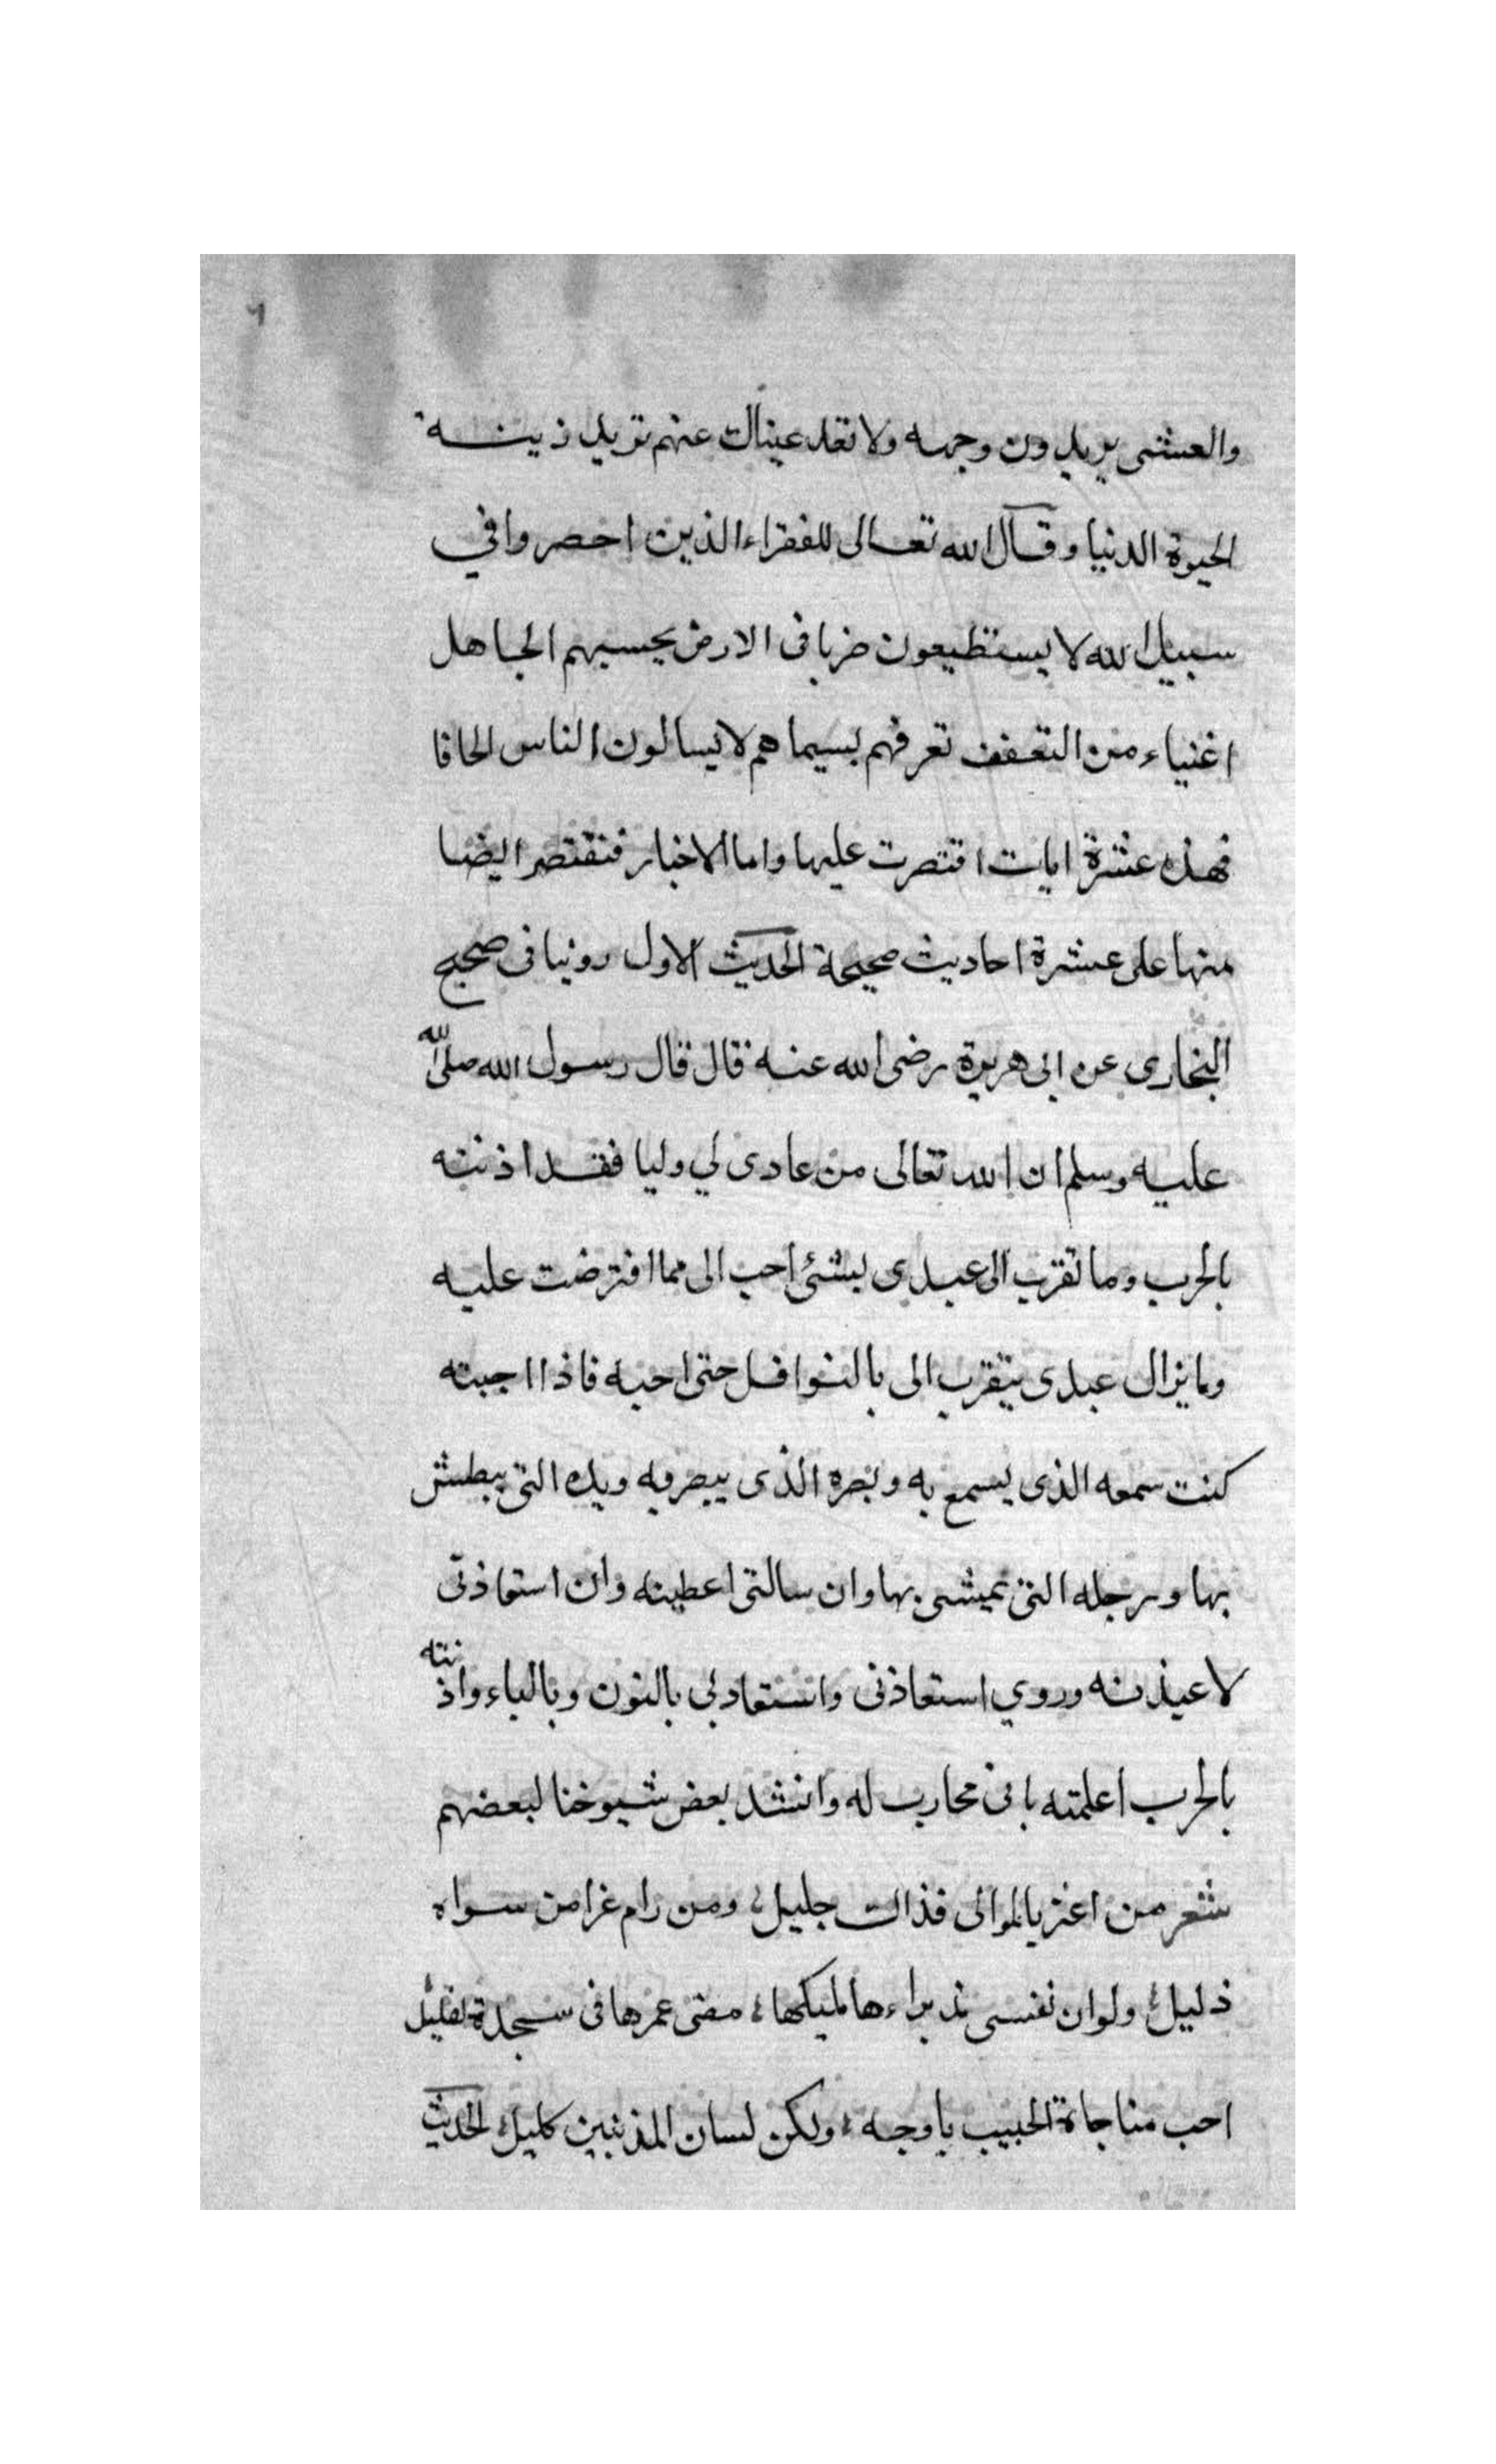 ٦
والعشى يريدون وجهه ولا تعد عيناك عنهم تريد زينة
الحيوة الدنيا وقال الله تعالى للفقراء الذين احصروا في
سبيل الله لا يستطيعون ضربا فى الارض يحسبهم الجاهل
اغنياء من التعفف تعرفهم بسيماهم لا يسالون الناس الحافا
فهذه عشرة ايات اقتصرت عليها واما الاخبار فنقتصر ايضا
منها على عشرة احاديث صحيحة الحديث الاول روينا فى صحيح
البخارى عن ابى هريرة رضى الله عنه قال قال رسول الله صلى الله
عليه وسلم ان الله تعالى من عادى لي وليا فقد اذنته
بالحرب وما تقرب الى عبدى بشئ احب الى مما افترضت عليه
وما يزال عبدى يتقرب الى بالنوافل حتى احبه فاذا احببته
كنت سمعه الذى يسمع به وبصره الذى يبصر به ويده التى يبطش
بها ورجله التى يمشى بها وان سالنى اعطيته وان استعاذنى
لاعيذنه وروي استعاذنى واستعاذ بي بالنون وبالباء واذنته
بالحرب اعلمته بانى محارب له وانشد بعض شيوخنا لبعضهم
شعر من اعتز بالموالى فذاك جليل ومن رام عزا من سواه
ذليل ولو ان نفسى مذ براءها مليكها مضى عمرها فى سجدة لقليل
احب مناجاة الحبيب باوجه ولكن لسان المذنبين كليل الحديث